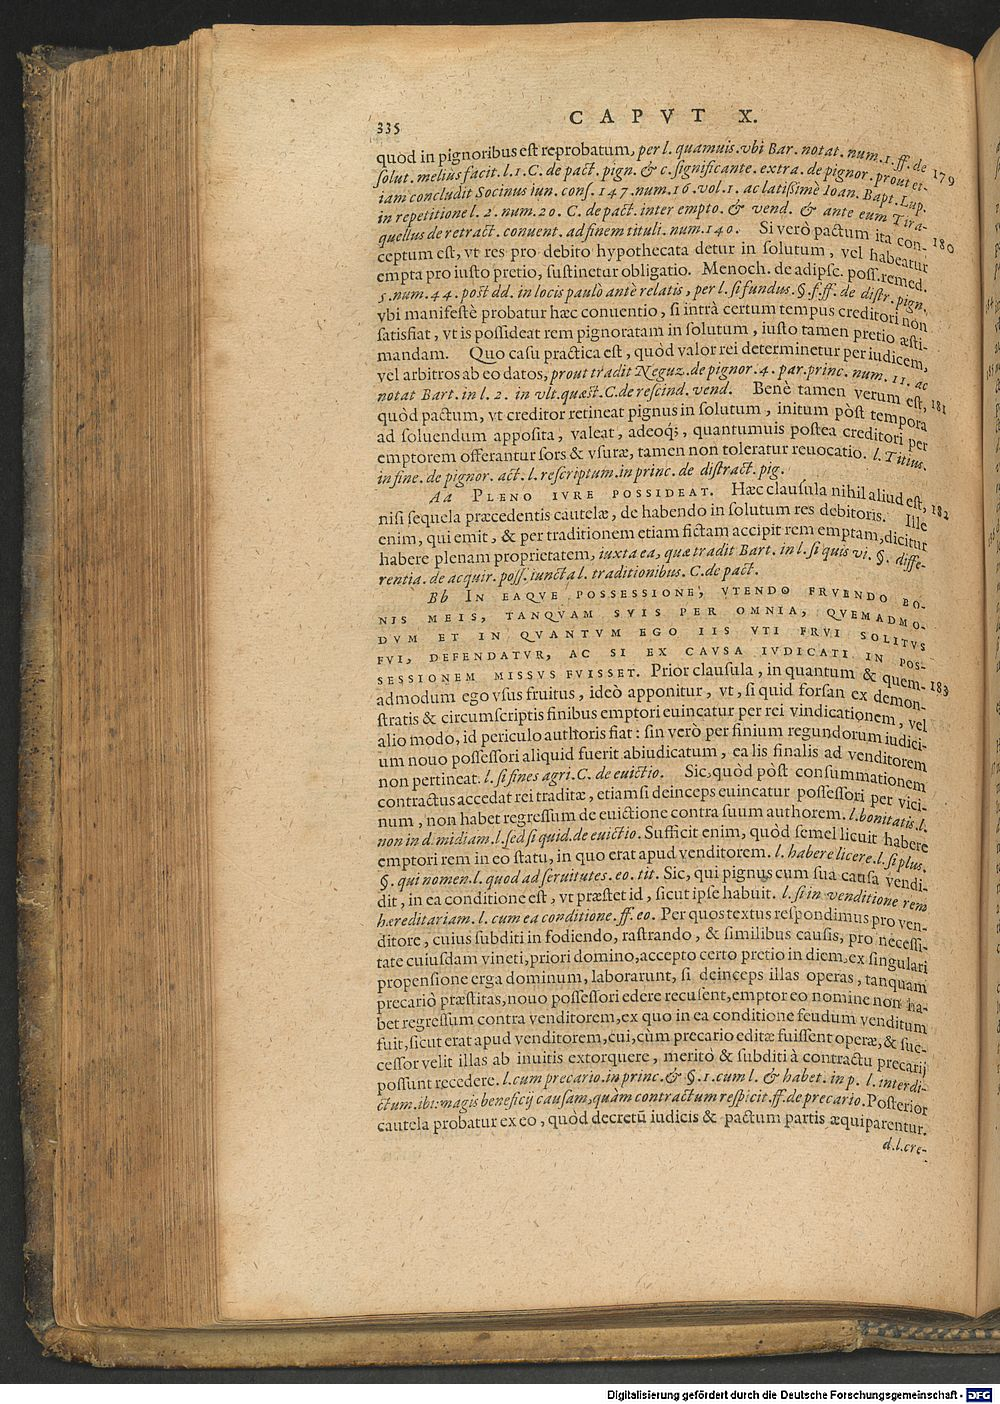 335 CAPVT X.
quòd in pignoribus est reprobatum, per l. quamuis. vbi Bar. notat. num. 1. ff. de 179
solut. melius facit. l. 1. C. de pact. pign. & c. significante. extra. de pignor. prout et-
iam concludit Socinus iun. cons. 147. num. 16. vol. 1. ac latißimè Ioan. Bapt. Lup.
in repetitione l. 2. num. 20. C. de pact. inter empto. & vend. & ante eum Tira-
quellus de retract. conuent. ad finem tituli. num. 140. Si verò pactum ita con- 180
ceptum est, vt res pro debito hypothecata detur in solutum, vel habeatur
empta pro iusto pretio, sustinetur obligatio. Menoch. de adipsc. poss. remed.
5. num. 44. post dd. in locis paulò antè relatis, per l. si fundus. §. f. ff. de distr. pign.
vbi manifestè probatur hæc conuentio, si intrà certum tempus creditori non
satisfiat, vt is possideat rem pignoratam in solutum, iusto tamen pretio æsti-
mandam. Quo casu practica est, quòd valor rei determinetur per iudicem,
vel arbitros ab eo datos, prout tradit Neguz. de pignor. 4. par. princ. num. 11. ac
notat Bart. in l. 2. in vlt. quæst. C. de rescind. vend. Benè tamen verum est, 181
quòd pactum, vt creditor retineat pignus in solutum, initum pòst tempora
ad soluendum apposita, valeat, adeoq;, quantumuis postea creditori per
emptorem offerantur sors & vsuræ, tamen non toleratur reuocatio. l. Titius.
in fine. de pignor. act. l. rescriptum. in princ. de distract. pig.
Aa PLENO IVRE POSSIDEAT. Hæc clausula nihil aliud est, 182
nisi sequela præcedentis cautelæ, de habendo in solutum res debitoris. Ille
enim, qui emit, & per traditionem etiam fictam accipit rem emptam, dicitur
habere plenam proprietatem, iuxta ea, quæ tradit Bart. in l. si quis vi. §. diffe-
rentia. de acquir. poss. iuncta l. traditionibus. C. de pact.
Bb IN EAQVE POSSESSIONE, VTENDO FRVENDO BO-
NIS MEIS, TANQVAM SVIS PER OMNIA, QVEMADMO-
DVM ET IN QVANTVM EGO IIS VTI FRVI SOLITVS
FVI, DEFENDATVR, AC SI EX CAVSA IVDICATI IN POS-
SESSIONEM MISSVS FVISSET. Prior clausula, in quantum & quem- 183
admodum ego vsus fruitus, ideò apponitur, vt, si quid forsan ex demon-
stratis & circumscriptis finibus emptori euincatur per rei vindicationem, vel
alio modo, id periculo authoris fiat: sin verò per finium regundorum iudici-
um nouo possessori aliquid fuerit abiudicatum, ea lis finalis ad venditorem
non pertineat. l. si fines agri. C. de euictio. Sic, quòd pòst consummationem
contractus accedat rei traditæ, etiamsi deinceps euincatur possessori per vici-
num, non habet regressum de euictione contra suum authorem. l. bonitatis. l.
non in d. midiam. l. sed si quid. de euictio. Sufficit enim, quòd semel licuit habere
emptori rem in eo statu, in quo erat apud venditorem. l. habere licere. l. si plus.
§. qui nomen. l. quod ad seruitutes. eo. tit. Sic, qui pignus cum sua causa vendi-
dit, in ea conditione est, vt præstet id, sicut ipse habuit. l. si in venditione rem
hæreditariam. l. cum ea conditione. ff. eo. Per quos textus respondimus pro ven-
ditore, cuius subditi in fodiendo, rastrando, & similibus causis, pro necessi-
tate cuiusdam vineti, priori domino, accepto certo pretio in diem, ex singulari
propensione erga dominum, laborarunt, si deinceps illas operas, tanquam
precariò præstitas, nouo possessori edere recusent, emptor eo nomine non ha-
bet regressum contra venditorem, ex quo in ea conditione feudum venditum
fuit, sicut erat apud venditorem, cui, cùm precario editæ fuissent operæ, & suc-
cessor velit illas ab inuitis extorquere, meritò & subditi à contractu precarij
possunt recedere. l. cum precario. in princ. & §. 1. cum l. & habet. in p. l. interdi-
ctum. ibi: magis beneficij causam, quàm contractum respicit. ff. de precario. Posterior
cautela probatur ex eo, quòd decretū iudicis & pactum partis æquiparentur.
d. l. cre-
Digitalisierung gefördert durch die Deutsche Forschungsgemeinschaft - DFG